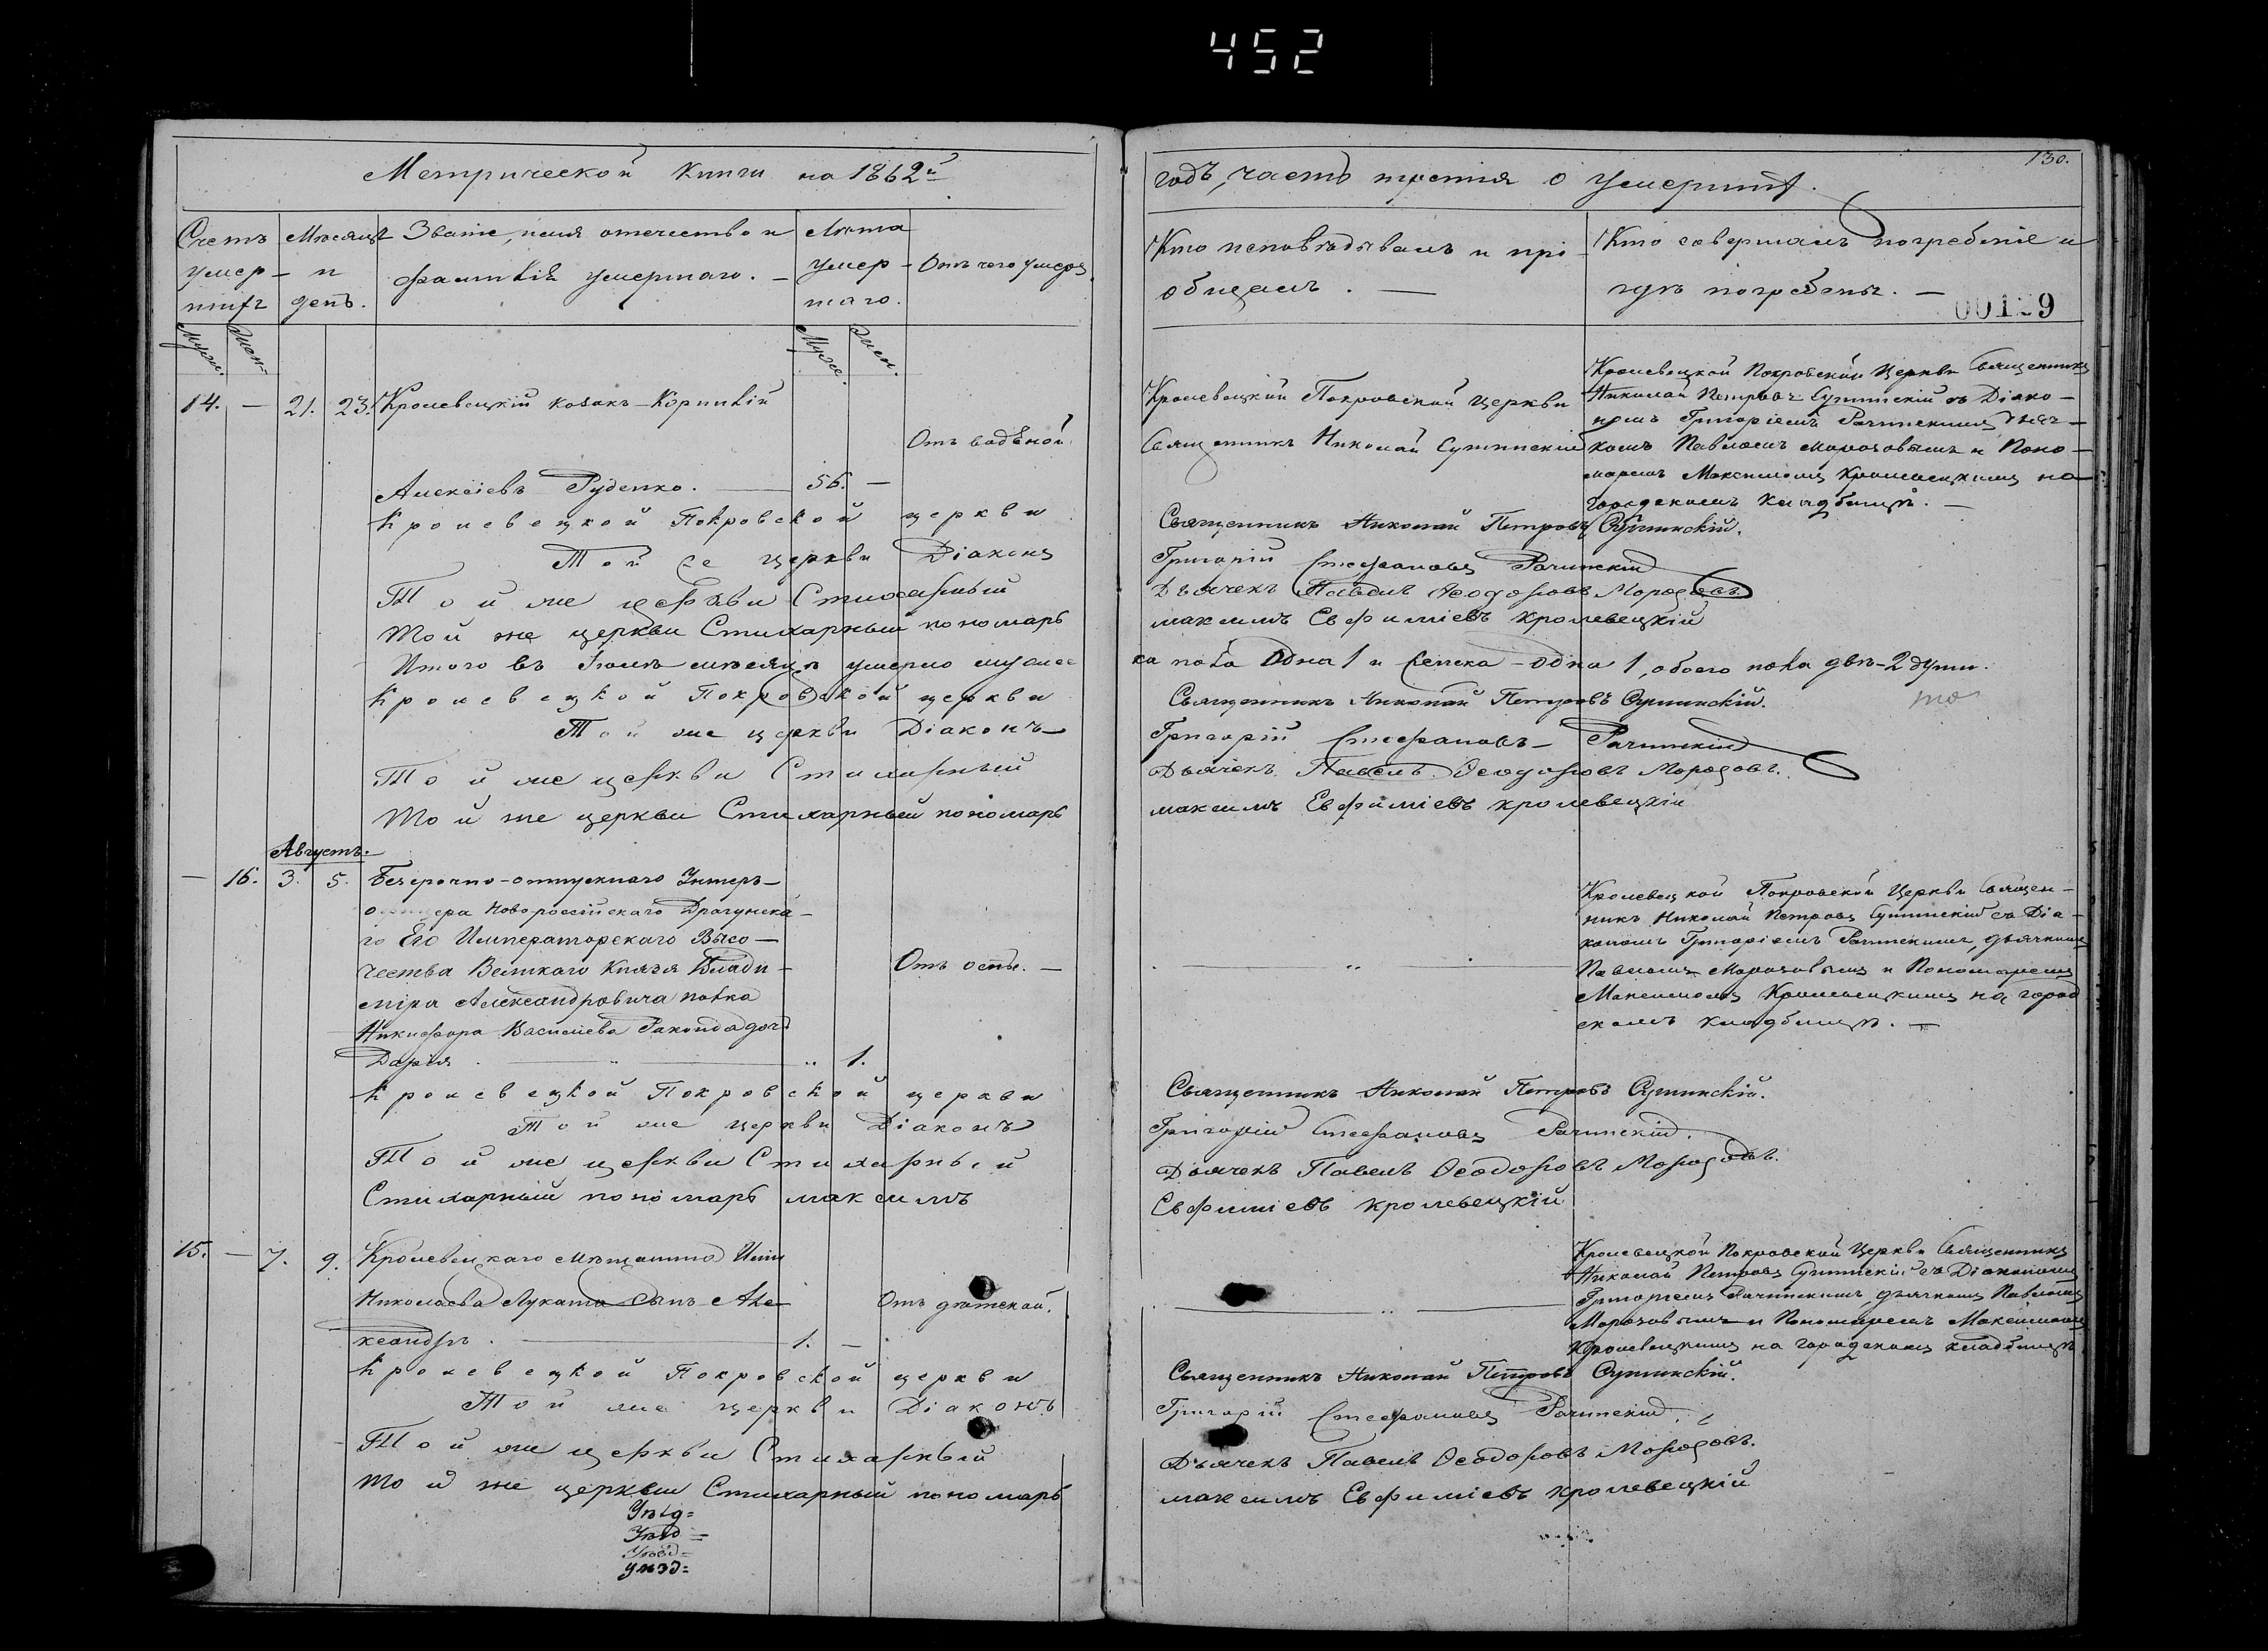 452
Метрической книги на 1862й
Счетъ умер-шихъ
Муж.
Жен.
Мѣсяцъ и день.
Званіе, имя отечество и фамилія умершаго. —
Лѣта умер-шаго.
Муже.
Жен.
Отъ чего умеръ
14. — 21. 23. Кролевецкій козакъ Корнилій
Отъ водяной
Алексіевъ Руденко. — 56. —
Кролевецкой Покровской церкви
Той же церкви Діаконъ
Той же церкви Стихарный
той же церкви Стихарный пономарь
Итого въ Іюлѣ мѣсяцѣ умерло мужес
Кролевецкой Покровской церкви
Той же церкви Діаконъ
Той же церкви Стихарный
той же церкви Стихарный пономарь
Августъ.
— 16. 3. 5. Безсрочно-отпускнаго Унтеръ-
офицера Новороссійскаго Драгунска-
го Его Императорскаго Высо-
чества Великаго Князя Влади-
Отъ оспы. —
міра Александровича полка
Никифора Василіева дочь
Дарія „ 1.
Кролевецкой Покровской церкви
Той же церкви Діаконъ
Той же церкви Стихарный
Стихарный пономарь максимъ
15. — 7. 9. Кролевецкаго мѣщанина
Николаева сынъ Але-
Отъ дѣтской.
ксандръ. — 1. —
Кролевецкой Покровской церкви
Той же церкви Діаконъ
Той же церкви Стихарный
той же церкви Стихарный пономарь
130.
годъ, часть третія о умершихъ.
Кто исповѣдывалъ и прі-
общалъ. —
Кто совершалъ погребеніе и
гдѣ погребены. —
Кролевецкой Покровской Церкви
Священникъ Николай
Кролевецкой Покровской Церкви Священникъ
Николай Петровъ съ Діако-
номъ Григоріемъ Рачинскимъ дьяч-
комъ Павломъ Морозовымъ и Поно-
маремъ Максимомъ Кролевецкимъ на
городскомъ кладбищѣ. —
Священникъ Николай Петровъ
Григорій Стефановъ Рачинскій
Дьячекъ Павелъ Ѳеодоровъ Морозовъ
максимъ Евфиміевъ кролевецкій
ка пола одна 1 и женска — одна 1, обоего пола двѣ — 2 души.
Священникъ Николай Петровъ
Григорій Стефановъ Рачинскій
Дьячекъ Павелъ Ѳеодоровъ Морозовъ.
максимъ Евфиміевъ кролевецкій
Кролевецкой Покровской Церкви Священ-
никъ Николай Петровъ съ Діа-
кономъ Григоріемъ Рачинскимъ, дьячкомъ
Павломъ Морозовымъ и Пономаремъ
Максимомъ Кролевецкимъ на город
скомъ кладбищѣ. —
Священникъ Николай Петровъ
Григорій Стефановъ Рачинскій.
Дьячекъ Павелъ Ѳеодоровъ Морозовъ.
Евфиміевъ кролевецкій
Кролевецкой Покровской Церкви Священникъ
Николай Петровъ съ Діакономъ
Григоріемъ Рачинскимъ, дьячкомъ Павломъ
Морозовымъ и Пономаремъ Максимомъ
Кролевецкимъ на городскомъ кладбищѣ
Священникъ Николай Петровъ
Григорій Стефановъ Рачинскій.
Дьячекъ Павелъ Ѳеодоровъ Морозовъ.
максимъ Евфиміевъ кролевецкій